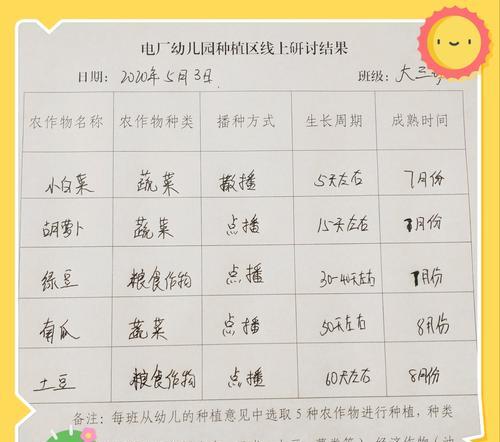 电厂幼儿园种植区线上研讨结果
日期：2020年5月3日. 班级：大三
农作物名称 农作物种类 播种方式 生长周期 成熟时间
小白菜 蔬菜 撒播 5天左右 7月份
胡萝卜 蔬菜 点播 15天左右 7月份
绿豆 粮食作物 点播 30-40天左右 7月份
南瓜 蔬菜 点播 50天左右 8月份
土豆 粮食作物 点播 60天左右 8月份
备注：每班从幼儿的种植意见中选取 5 种农作物进行种植，种类